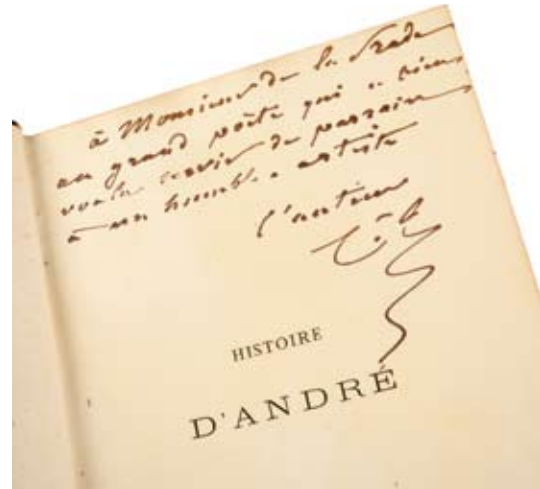 à Monsieur de la Prade
au grand poète qui a bien
voulu servir de parrain
à un humble artiste
l'auteur
HISTOIRE
D'ANDRÉ